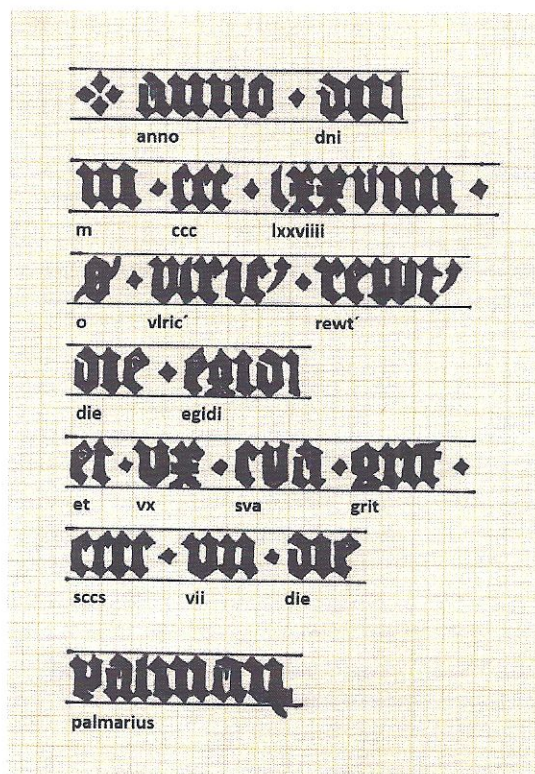 anno · dni
anno dni
m · ccc · lxxviiii ·
m ccc lxxviiii
o · vlric´ · rewt´
o vlric´ rewt´
die · egidi
die egidi
et · vx · sva · grit ·
et vx sva grit
vii · die
sccs vii die
palmarius